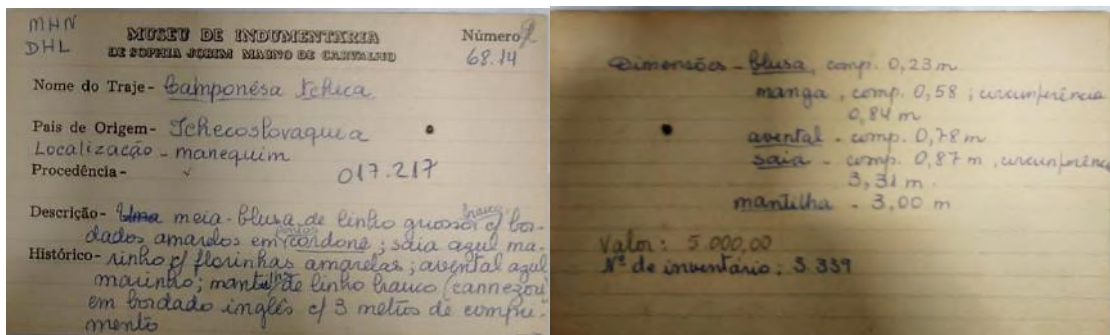 MHN
DHL
MUSEU DE INDUMENTÁRIA
DE SOPHIA JOBIM MAGNO DE CARVALHO
Número
68.14
Nome do Traje - Camponêsa tcheca
País de Origem - Tchecoslovaquia
Localização - manequim
Procedência -
017.217
Descrição - Uma meia-blusa de linho grosso branco c/ bor-
dados amarelos em cordoné; saia azul ma-
Histórico - rinho c/ florinhas amarelas; avental azul
marinho; mantilha de linho branco (cannezou)
em bordado inglês c/ 3 metros de compri-
mento
Dimensões - blusa, comp. 0,23 m
manga, comp. 0,58; circunferência
0,84 m
avental - comp. 0,78 m
saia - comp. 0,87 m, circunferência
3,31 m.
mantilha - 3,00 m
Valor: 5.000,00
Nº de inventário: 3.339